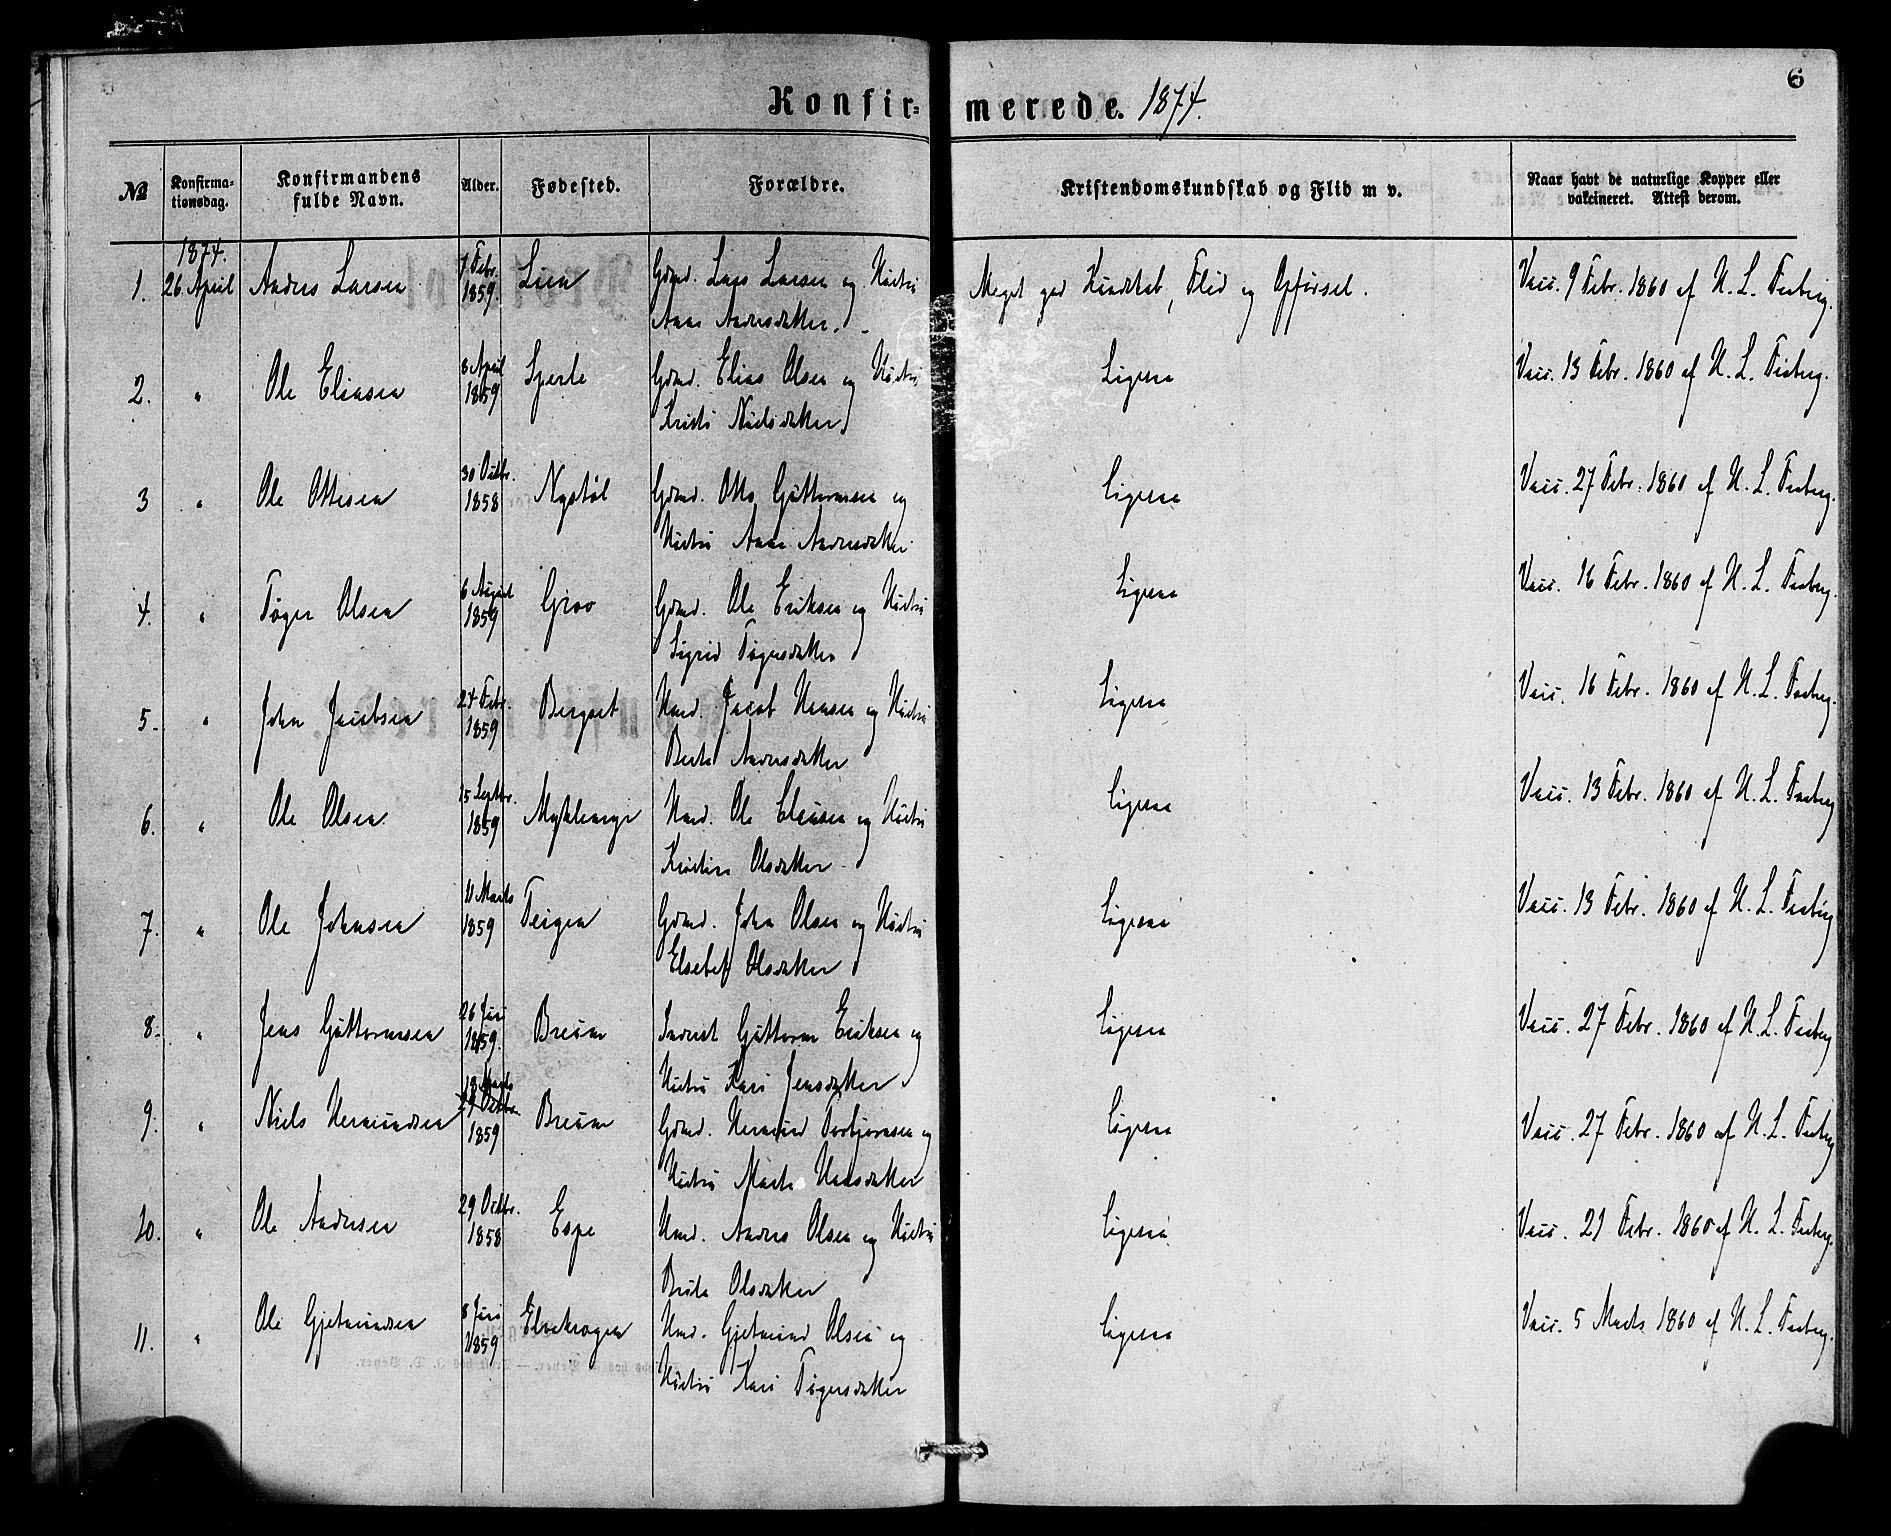 6
Konfir= merede. 1874.
№ Konfirma- tionsdag. Konfirmandens fulde Navn. Alder. Fødested. Forældre. Kristendomskundskab og Flid m v. Naar havt de naturlige Kopper eller vakcineret. Attest derom.
1874.
1. 26. April Anders Larsen 7 Febr. 1859. Lien Gdmd. Lars Larsen og Hustru Meget god Kundskab, Flid og Opførsel. Vacc. 9 Febr. 1860 af N. L. Faaberg.
Anne Andersdatter.
2. " Ole Eliasen 8 April 1859 Sperle Gdmd. Elias Olsen og Hustru Ligesaa Vacc. 13 Febr. 1860 af N. L. Faaberg.
Kristi Nielsdatter
3 " Ole Ottesen 30 Octbr. 1858 Nystøl Gdmd. Otto Guttormsen og Ligesaa Vacc. 27 Febr. 1860 af N. L. Faaberg.
Hustru Anne Andersdatter
4. " Tøger Olsen 6 August 1859 Grov Gdmd. Ole Eriksen og Hustru Ligesaa Vacc. 16 Febr. 1860 af N. L. Faaberg.
Sigrid Tøgersdatter
5. " John Jacobsen 24 Febr. 1859 Bergset Hmd. Jacob Hansen og Hustru Ligesaa Vacc. 16 Febr. 1860 af N. L. Faaberg.
Berte Andersdatter
6. " Ole Olsen 15 Septbr. 1859 Myklemyr Hmd. Ole Clausen og Hustru Ligesaa Vacc. 13 Febr. 1860 af N. L. Faaberg
Kristine Olsdatter
7. " Ole Johnsen 11 Marts 1859 Teigen Gdmd. John Olsen og Hustru Ligesaa Vacc. 13 Febr. 1860 af N. L. Faaberg
Elsebet Olsdatter
8. " Jens Guttormsen 26 Juni 1859. Breum Inderst Guttorm Eriksen og Ligesaa Vacc. 27 Febr. 1860 af N. L. Faaberg
Hustru Kari Jensdatter
9. " Niels Hermundsen 18 Marts 1859 Breum Gdmd. Hermund Torbjørnsen og Ligesaa Vacc. 27 Febr. 1860 af N. L. Faaberg
Hustru Marte Hansdatter
10. " Ole Andersen 29 Octbr. 1858 Espe Hmd. Anders Olsen og Hustru Ligesaa Vacc. 21 Febr. 1860 af N. L. Faaberg.
Brita Olsdatter
11. " Ole Gjetmundsen 8 Juni 1859 Elvekrogen Hmd. Gjetmund Olsen og Ligesaa Vacc. 5 Marts 1860 af N. L. Faaberg.
Hustru Kari Tøgersdatter